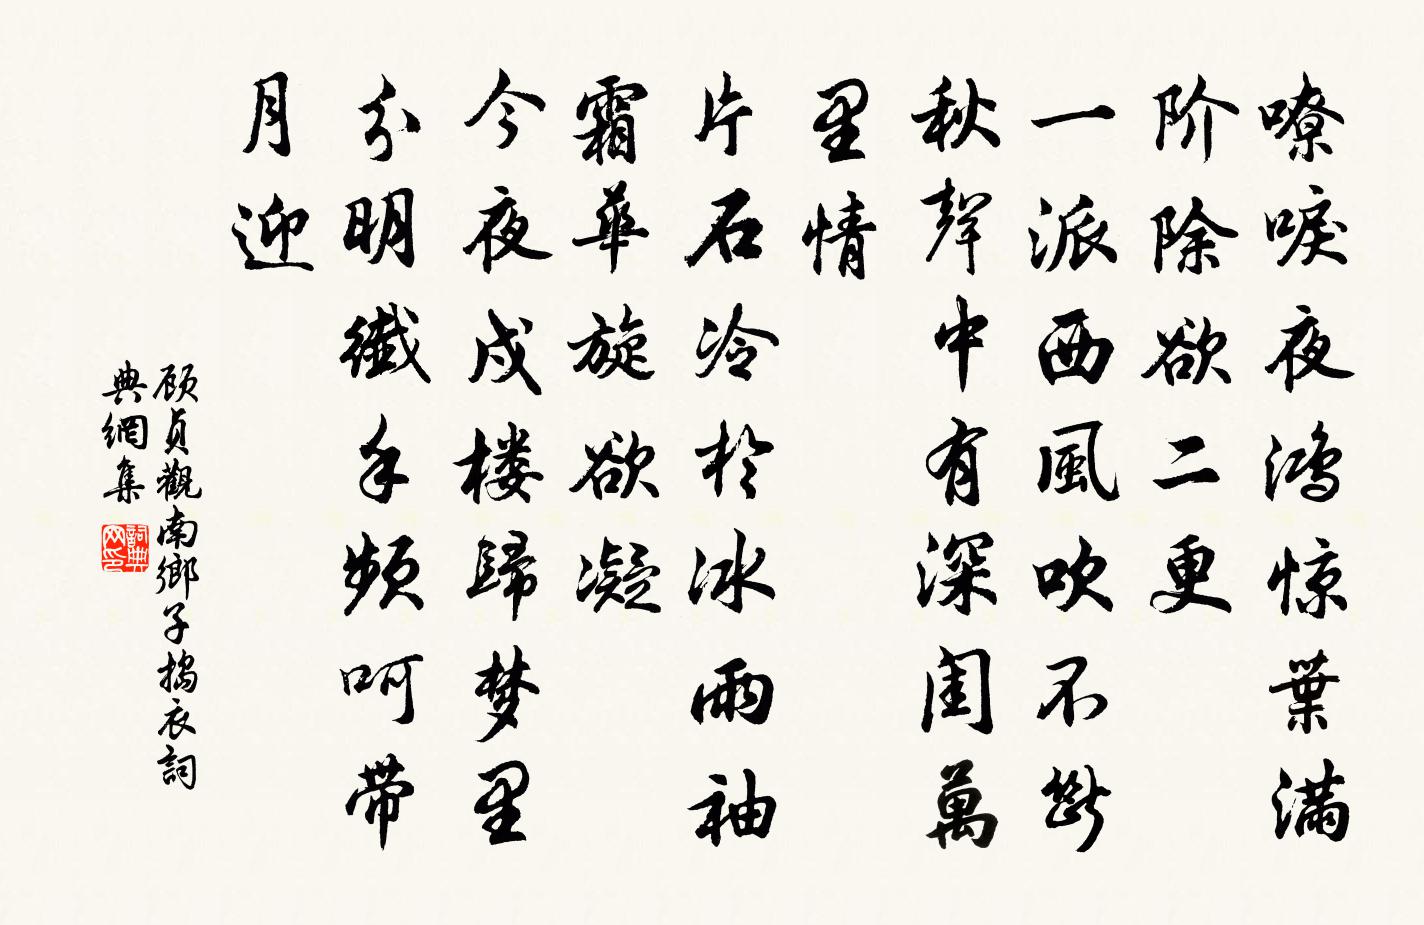 嘹唳夜鸿惊葉满
阶除欲二更
一派西風吹不斷
秋聲中有深闺萬
里情
片石冷於冰雨袖
霜華旋欲凝
今夜戍楼歸梦里
分明纖手频呵带
月迎
顾贞觀南鄉子捣衣詞
典網集
詞典网印